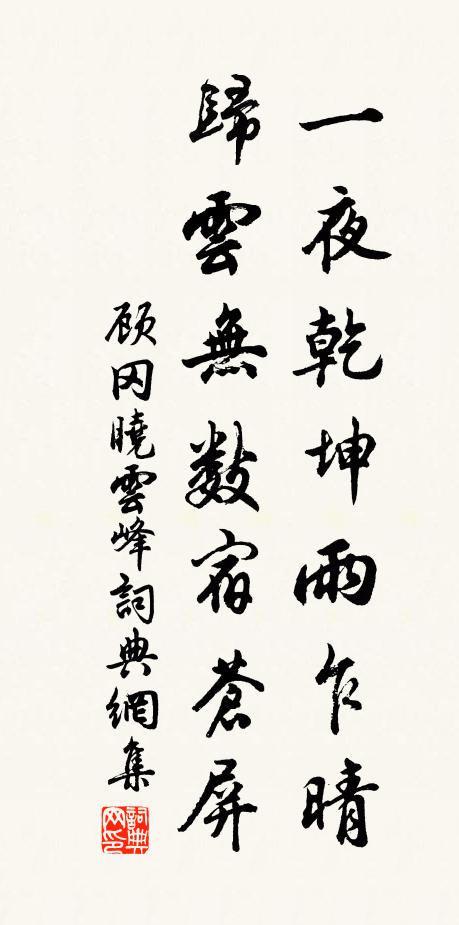 一夜乾坤雨乍晴
歸雲無數宿蒼屏
顾冈曉雲峰詞典網集
詞典网印